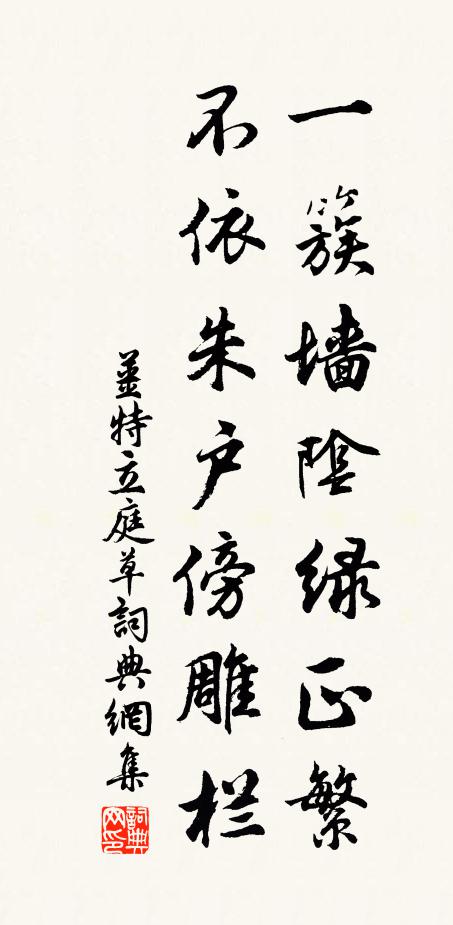 一簇墙陰绿正繁
不依朱户傍雕栏
姜特立庭草詞典網集
詞典网印